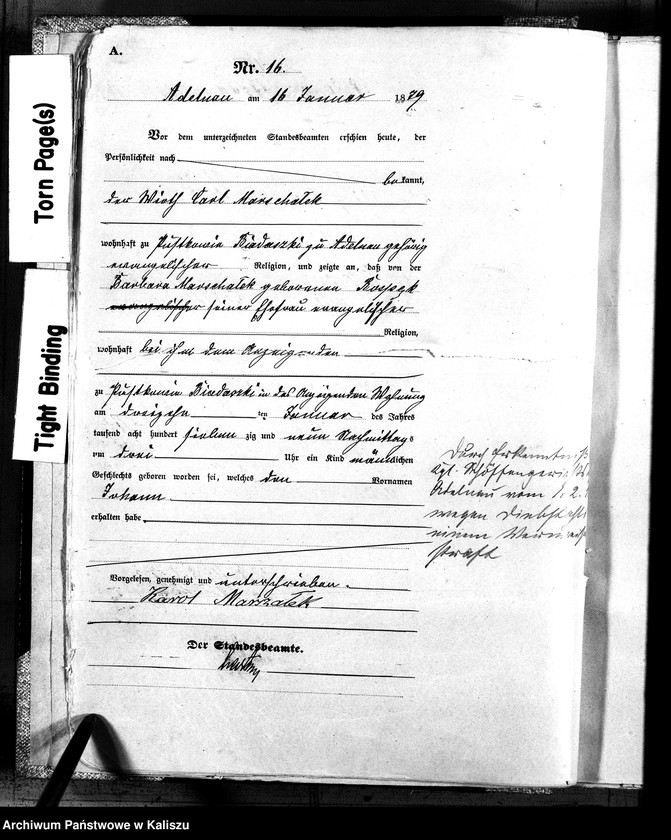 Torn Page(s)
Tight Binding
A.
Nr. 16.
Adelnau am 16 Januar 1879
Vor dem unterzeichneten Standesbeamten erschien heute, der
Persönlichkeit nach
bekannt,
der Wirth Carl Marschalek
wohnhaft zu Pustkowie Biadaszki zu Adelnau gehörig
evangelischer Religion, und zeigte an, daß von der
Barbara Marschalek geborenen
evangelischer seiner Ehefrau evangelischer
Religion,
wohnhaft bei ihm dem Anzeigenden
zu Pustkowie Biadaszki in des Anzeigenden Wohnung
am dreizehn ten Januar des Jahres
tausend acht hundert sieben zig und neun Nachmittags
um drei Uhr ein Kind männlichen
Geschlechts geboren worden sei, welches den Vornamen
Johann
erhalten habe.
Vorgelesen, genehmigt und unterschrieben.
Karol Marszałek
Der Standesbeamte.
Durch Erkenntniß
Kgl. Schöffengeri
Adelnau vom
wegen Diebstahl
einem
straft
Archiwum Państwowe w Kaliszu